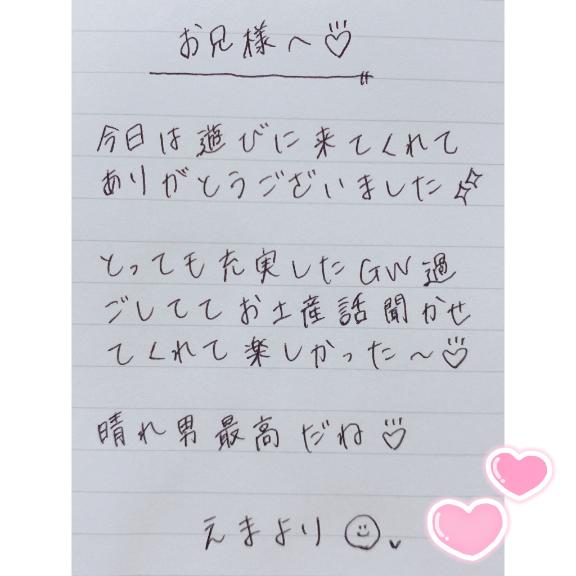 お兄様へ♡
今日は遊びに来てくれて
ありがとうございました✨
とっても充実したGW過
ごしててお土産話聞かせ
てくれて楽しかった〜♡
晴れ男最高だね♡
えまより☺